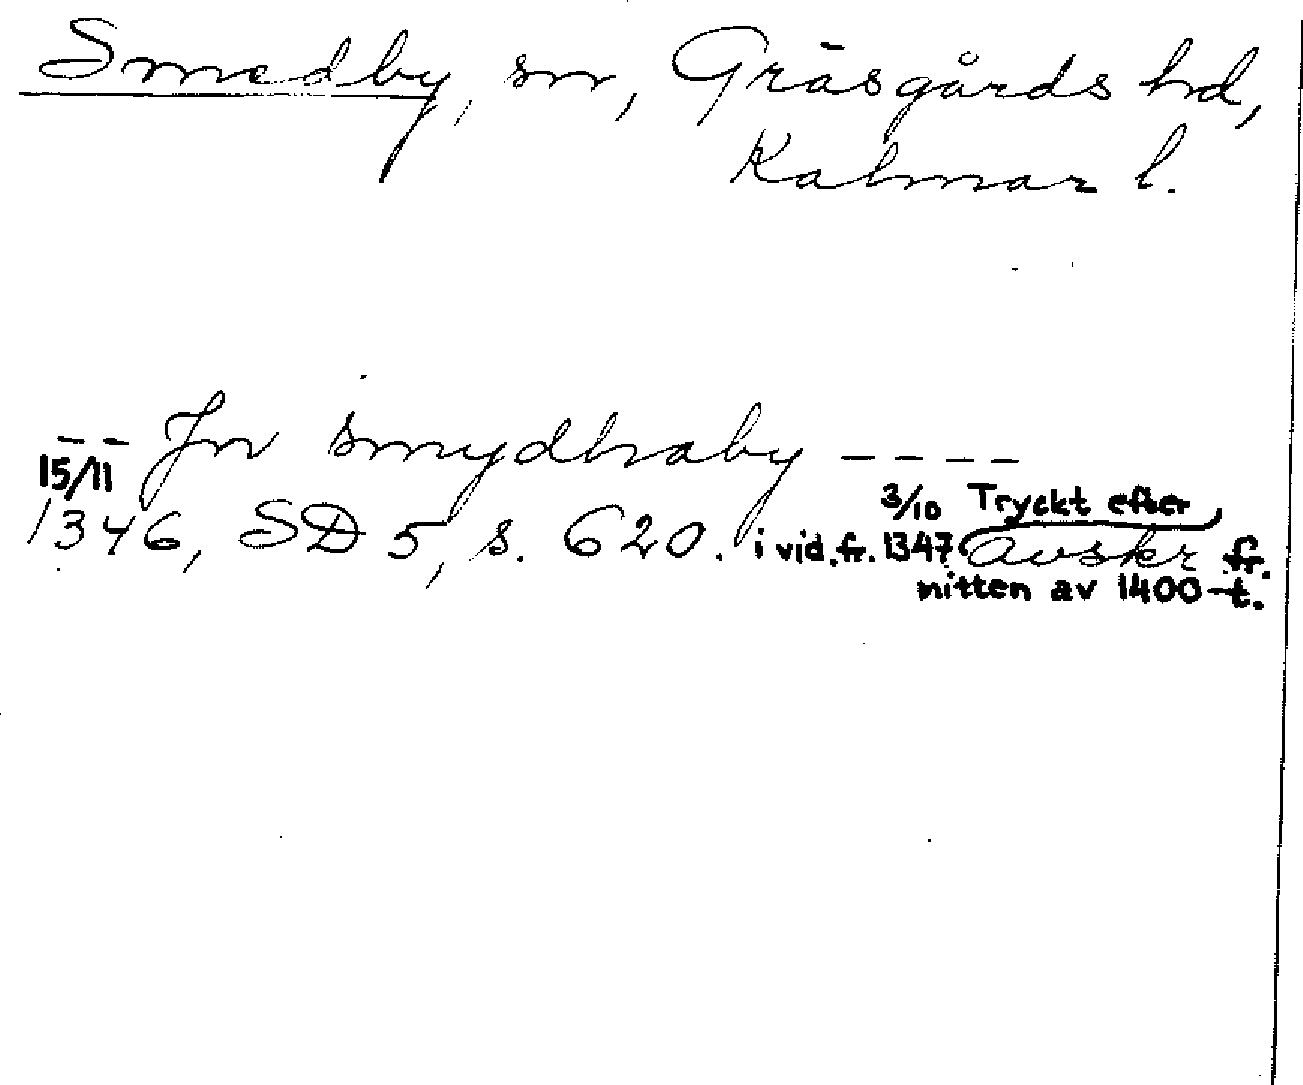 Smedby, sn, Gräsgårds hd,
Kalmar l.
-- Jn smydhaby ----
15/11
1346, SD 5, s. 620. i vid. fr. 3/10 1347 Tryckt efter avskr fr.
mitten av 1400-t.